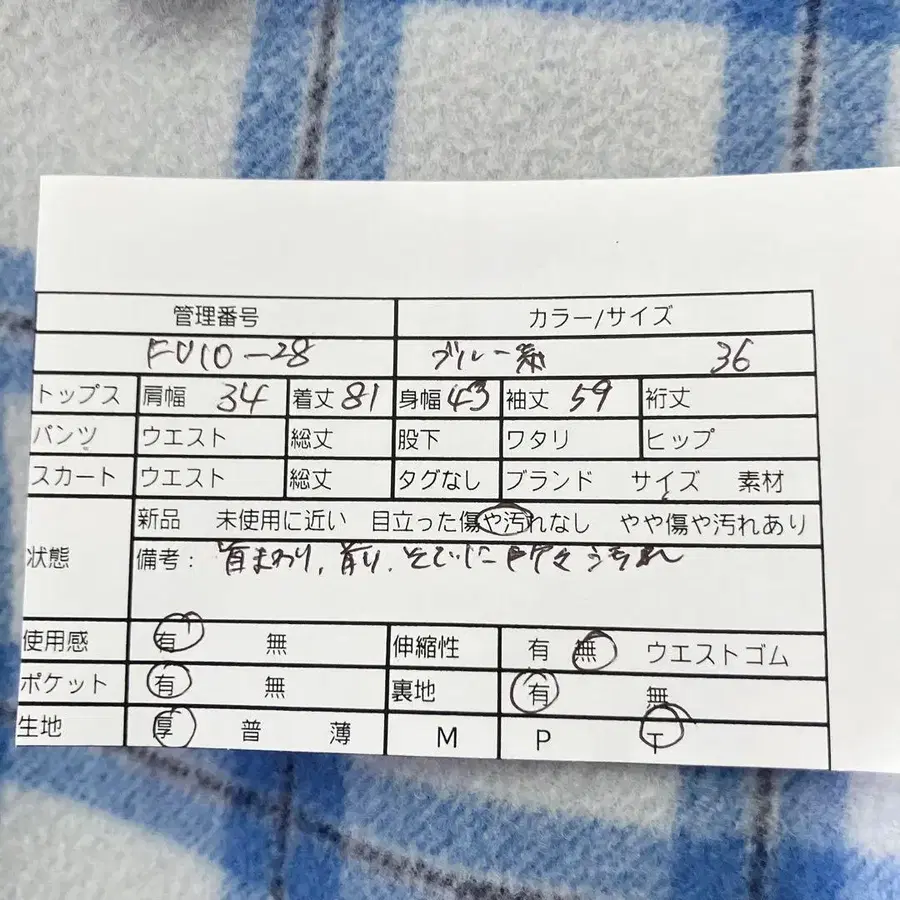 管理番号 カラー/サイズ
FU10-28 ブルー系 36
トップス 肩幅 34 着丈 81 身幅 43 袖丈 59 裄丈
パンツ ウエスト 総丈 股下 ワタリ ヒップ
スカート ウエスト 総丈 タグなし ブランド サイズ 素材
状態 新品 未使用に近い 目立った傷や汚れなし やや傷や汚れあり
備考: 首まわり、前り、そでに 汚れ
使用感 有 無 伸縮性 有 無 ウエストゴム
ポケット 有 無 裏地 有 無
生地 厚 普 薄 M P T